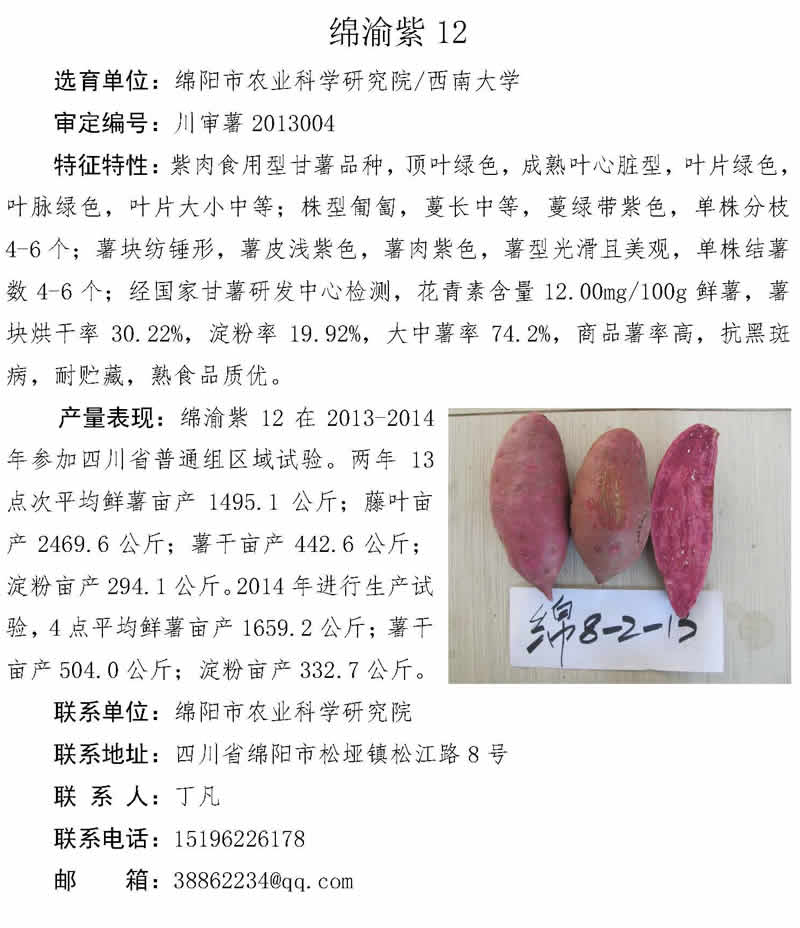 绵渝紫 12
选育单位：绵阳市农业科学研究院/西南大学
审定编号：川审薯 2013004
特征特性：紫肉食用型甘薯品种，顶叶绿色，成熟叶心脏型，叶片绿色，
叶脉绿色，叶片大小中等；株型匍匐，蔓长中等，蔓绿带紫色，单株分枝
4-6 个；薯块纺锤形，薯皮浅紫色，薯肉紫色，薯型光滑且美观，单株结薯
数 4-6 个；经国家甘薯研发中心检测，花青素含量 12.00mg/100g 鲜薯，薯
块烘干率 30.22%，淀粉率 19.92%，大中薯率 74.2%，商品薯率高，抗黑斑
病，耐贮藏，熟食品质优。
产量表现：绵渝紫 12 在 2013-2014
年参加四川省普通组区域试验。两年 13
点次平均鲜薯亩产 1495.1 公斤；藤叶亩
产 2469.6 公斤；薯干亩产 442.6 公斤；
淀粉亩产 294.1 公斤。2014 年进行生产试
验，4 点平均鲜薯亩产 1659.2 公斤；薯干
亩产 504.0 公斤；淀粉亩产 332.7 公斤。
绵 8-2-15
联系单位：绵阳市农业科学研究院
联系地址：四川省绵阳市松垭镇松江路 8 号
联 系 人：丁凡
联系电话：15196226178
邮　　箱：38862234@qq.com